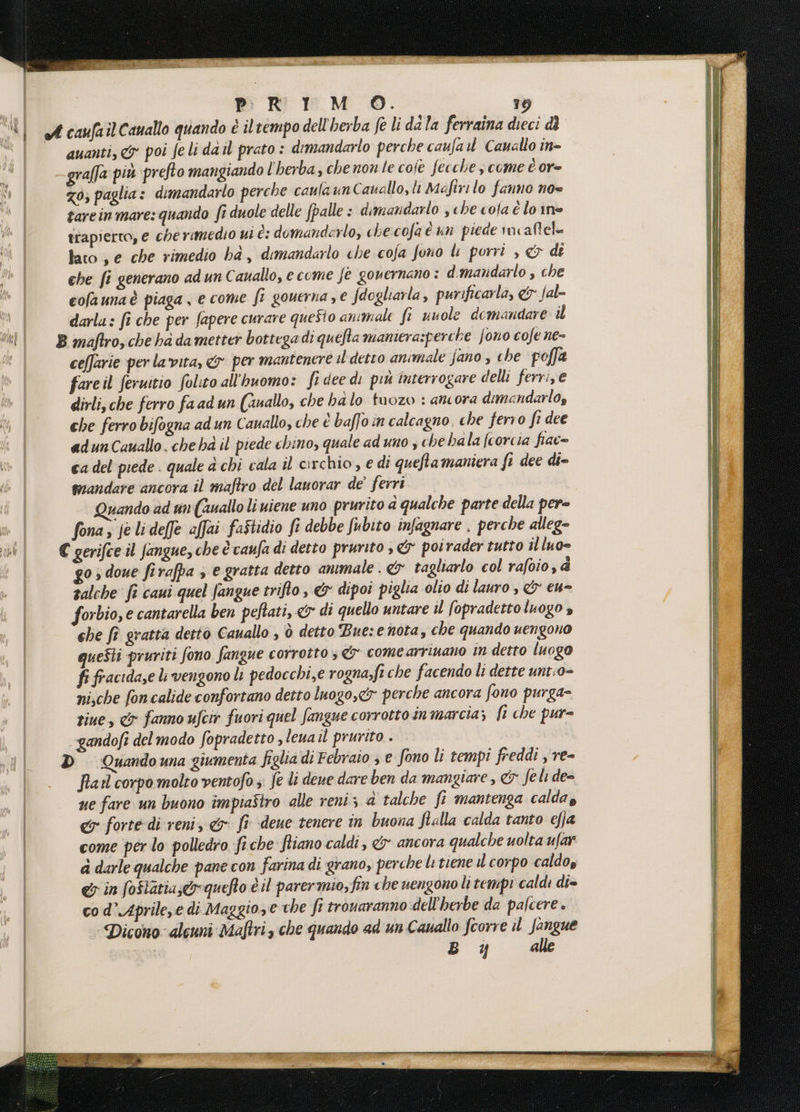 PRIMO. 19
A cauſa il Cauallo quando è il tempo dell'herba ſe li dà la ferraina dieci dì
auanti, & poi ſe li dà il prato: dimandarlo perche cauſa il Cauallo in-
graſſa più preſto mangiando l'herba, che non le coſe ſecche, come è or-
zo, paglia: dimandarlo perche cauſa un Cauallo, li Maſtri lo fanno no-
tare in mare: quando ſi duole delle ſpalle: dimandarlo, che coſa è lo in-
trapierto, e che rimedio ui è: domandarlo, che coſa è un piede incaſtel-
lato, e che rimedio hà, dimandarlo che coſa ſono li porri, & di
che ſi generano ad un Cauallo, e come ſe gouernano: dimandarlo, che
coſa una è piaga, e come ſi gouerna, e ſdogliarla, purificarla, & ſal-
darla: ſi che per ſapere curare queſto animale ſi uuole domandare il
B maſtro, che hà da metter bottega di queſta maniera: perche ſono coſe ne-
ceſſarie per la vita, & per mantenere il detto animale ſano, che poſſa
fare il ſeruitio ſolito all'huomo: ſi dee di più interrogare delli ferri, e
dirli, che ferro fa ad un Cauallo, che hà lo tuozo: ancora dimandarlo,
che ferro biſogna ad un Cauallo, che è baſſo in calcagno, che ferro ſi dee
ad un Cauallo, che hà il piede chino, quale ad uno, che hà la ſcorcia fiac-
ca del piede. quale à chi cala il circhio, e di queſta maniera ſi dee di-
mandare ancora il maſtro del lauorar de' ferri
Quando ad un Cauallo li uiene uno prurito à qualche parte della per-
ſona, ſe li deſſe aſſai faſtidio ſi debbe ſubito inſagnare. perche alleg-
C geriſce il ſangue, che è cauſa di detto prurito, & poi rader tutto il luo-
go, doue ſi raſpa, e gratta detto animale. & tagliarlo col raſoio, à
talche ſi caui quel ſangue triſto, & dipoi piglia olio di lauro, & eu-
forbio, e cantarella ben peſtati, & di quello untare il ſopradetto luogo,
che ſi gratta detto Cauallo, ò detto Bue: e nota, che quando uengono
queſti pruriti ſono ſangue corrotto, & come arriuano in detto luogo
ſi fracida, e li vengono li pedocchi, e rogna, ſi che facendo li dette untio-
ni, che ſon calide confortano detto luogo, & perche ancora ſono purga-
tiue, & fanno uſcir fuori quel ſangue corrotto in marcia; ſi che pur-
gandoſi del modo ſopradetto, leua il prurito.
D Quando una giumenta figlia di Febraio, e ſono li tempi freddi, re-
ſta il corpo molto ventoſo, ſe li deue dare ben da mangiare, & ſe li de-
ue fare un buono impiaſtro alle reni; à talche ſi mantenga calda,
& forte di reni, & ſi deue tenere in buona ſtalla calda tanto eſſa
come per lo polledro ſi che ſtiano caldi, & ancora qualche uolta uſar
à darle qualche pane con farina di grano, perche li tiene il corpo caldo,
& in ſoſtatia, & queſto è il parer mio, fin che uengono li tempi caldi di-
co d'Aprile, e di Maggio, e che ſi trouaranno dell'herbe da paſcere.
Dicono alcuni Maſtri, che quando ad un Cauallo ſcorre il ſangue
B ij alle